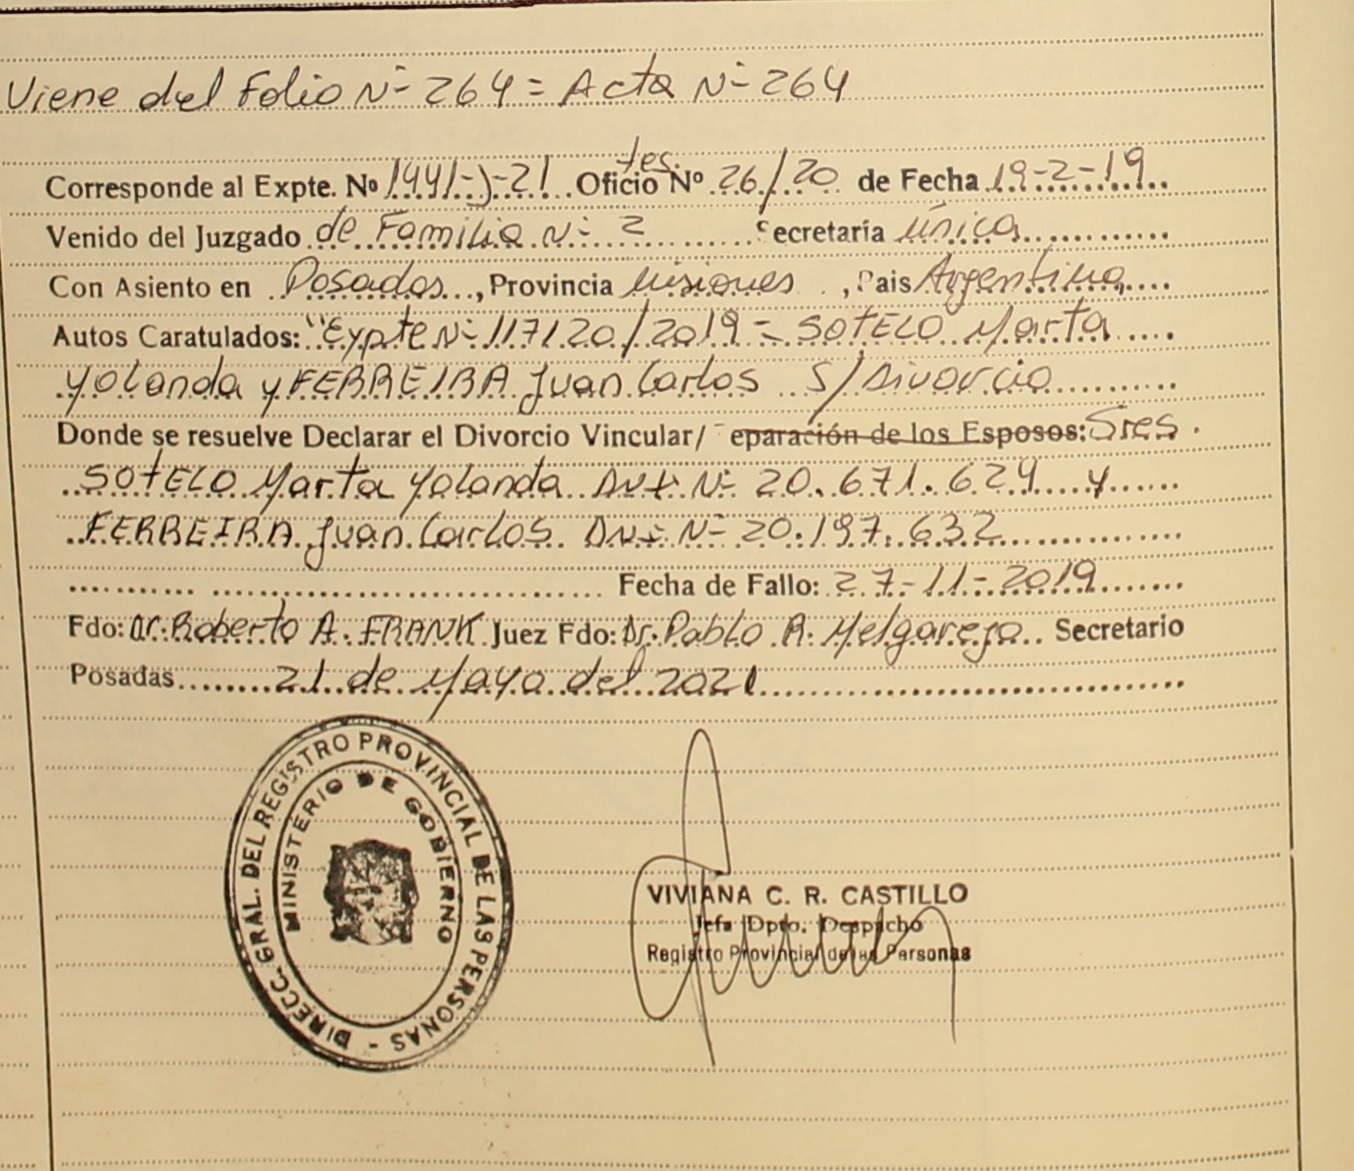 Viene del Folio Nº 264 = Acta Nº 264
tes.
Corresponde al Expte. Nº 1441-J-21 Oficio Nº 26/20 de Fecha 19-2-19
Venido del Juzgado de Familia Nº 2 Secretaría única
Con Asiento en Posadas, Provincia Misiones, Pais Argentina
Autos Caratulados: "Expte Nº 117120/2019 = SOTELO Marta
Yolanda y FERREIRA Juan Carlos S/Divorcio
Donde se resuelve Declarar el Divorcio Vincular/ eparación de los Esposos: Sres
SOTELO Marta Yolanda DNI Nº 20.671.624 y
FERREIRA Juan Carlos. DNI Nº 20.197.632
Fecha de Fallo: 27-11-2019
Fdo: Dr. Roberto A. FRANK Juez Fdo: Dr. Pablo A. Melgarejo Secretario
Posadas 21 de Mayo del 2021
DIRECC. GRAL. DEL REGISTRO PROVINCIAL DE LAS PERSONAS -
MINISTERIO DE GOBIERNO
VIVIANA C. R. CASTILLO
Jefa Dpto. Despacho
Registro Provincial de las Personas